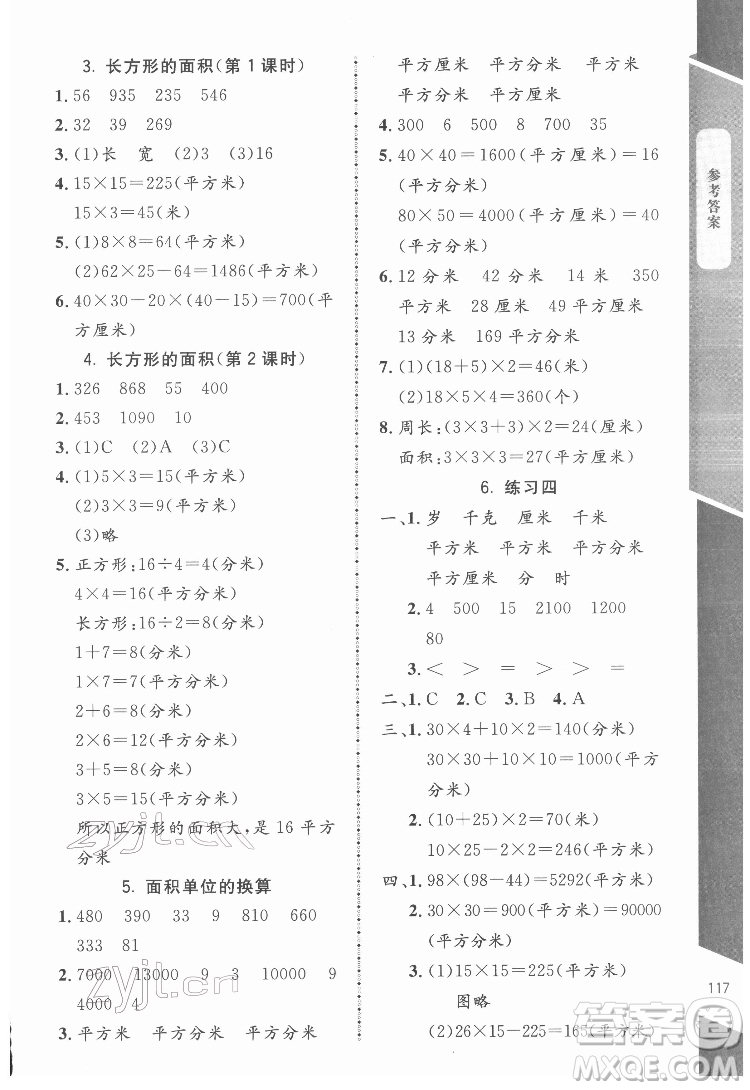 3. 长方形的面积(第1课时)
1. 56 935 235 546
2. 32 39 269
3. (1)长 宽 (2)3 (3)16
4. 15×15=225(平方米)
15×3=45(米)
5. (1)8×8=64(平方米)
(2)62×25-64=1486(平方米)
6. 40×30-20×(40-15)=700(平
方厘米)
4. 长方形的面积(第2课时)
1. 326 868 55 400
2. 453 1090 10
3. (1)C (2)A (3)C
4. (1)5×3=15(平方米)
(2)3×3=9(平方米)
(3)略
5. 正方形:16÷4=4(分米)
4×4=16(平方分米)
长方形:16÷2=8(分米)
1+7=8(分米)
1×7=7(平方分米)
2+6=8(分米)
2×6=12(平方分米)
3+5=8(分米)
3×5=15(平方分米)
所以正方形的面积大,是16平方
分米
5. 面积单位的换算
1. 480 390 33 9 810 660
333 81
2. 7000 13000 9 3 10000 9
4000 4
3. 平方米 平方米 平方分米
平方厘米 平方分米 平方米
平方分米 平方米
4. 300 6 500 8 700 35
5. 40×40=1600(平方厘米)=16
(平方分米)
80×50=4000(平方厘米)=40
(平方分米)
6. 12分米 42分米 14米 350
平方米 28厘米 49平方厘米
13分米 169平方分米
7. (1)(18+5)×2=46(米)
(2)18×5×4=360(个)
8. 周长:(3×3+3)×2=24(厘米)
面积:3×3×3=27(平方厘米)
6. 练习四
一、1. 岁 千克 厘米 千米
平方米 平方米 平方分米
平方厘米 分 时
2. 4 500 15 2100 1200
80
3. < > = > =
二、1. C 2. C 3. B 4. A
三、1. 30×4+10×2=140(分米)
30×30+10×10=1000(平方
分米)
2. (10+25)×2=70(米)
10×25-2×2=246(平方米)
四、1. 98×(98-44)=5292(平方米)
2. 30×30=900(平方分米)=90000
(平方分米)
3. (1)15×15=225(平方米)
图略
(2)26×15-225=165(平方米)
参考答案
117
zyjl.cn
zyjl.cn
答案圈
MXQE.COM